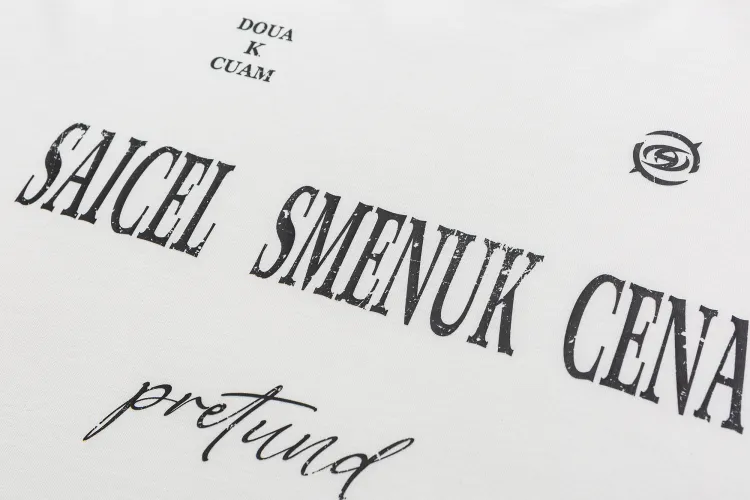 DOUA
K
CUAM
SAICEL SMENUK CENA
pretund